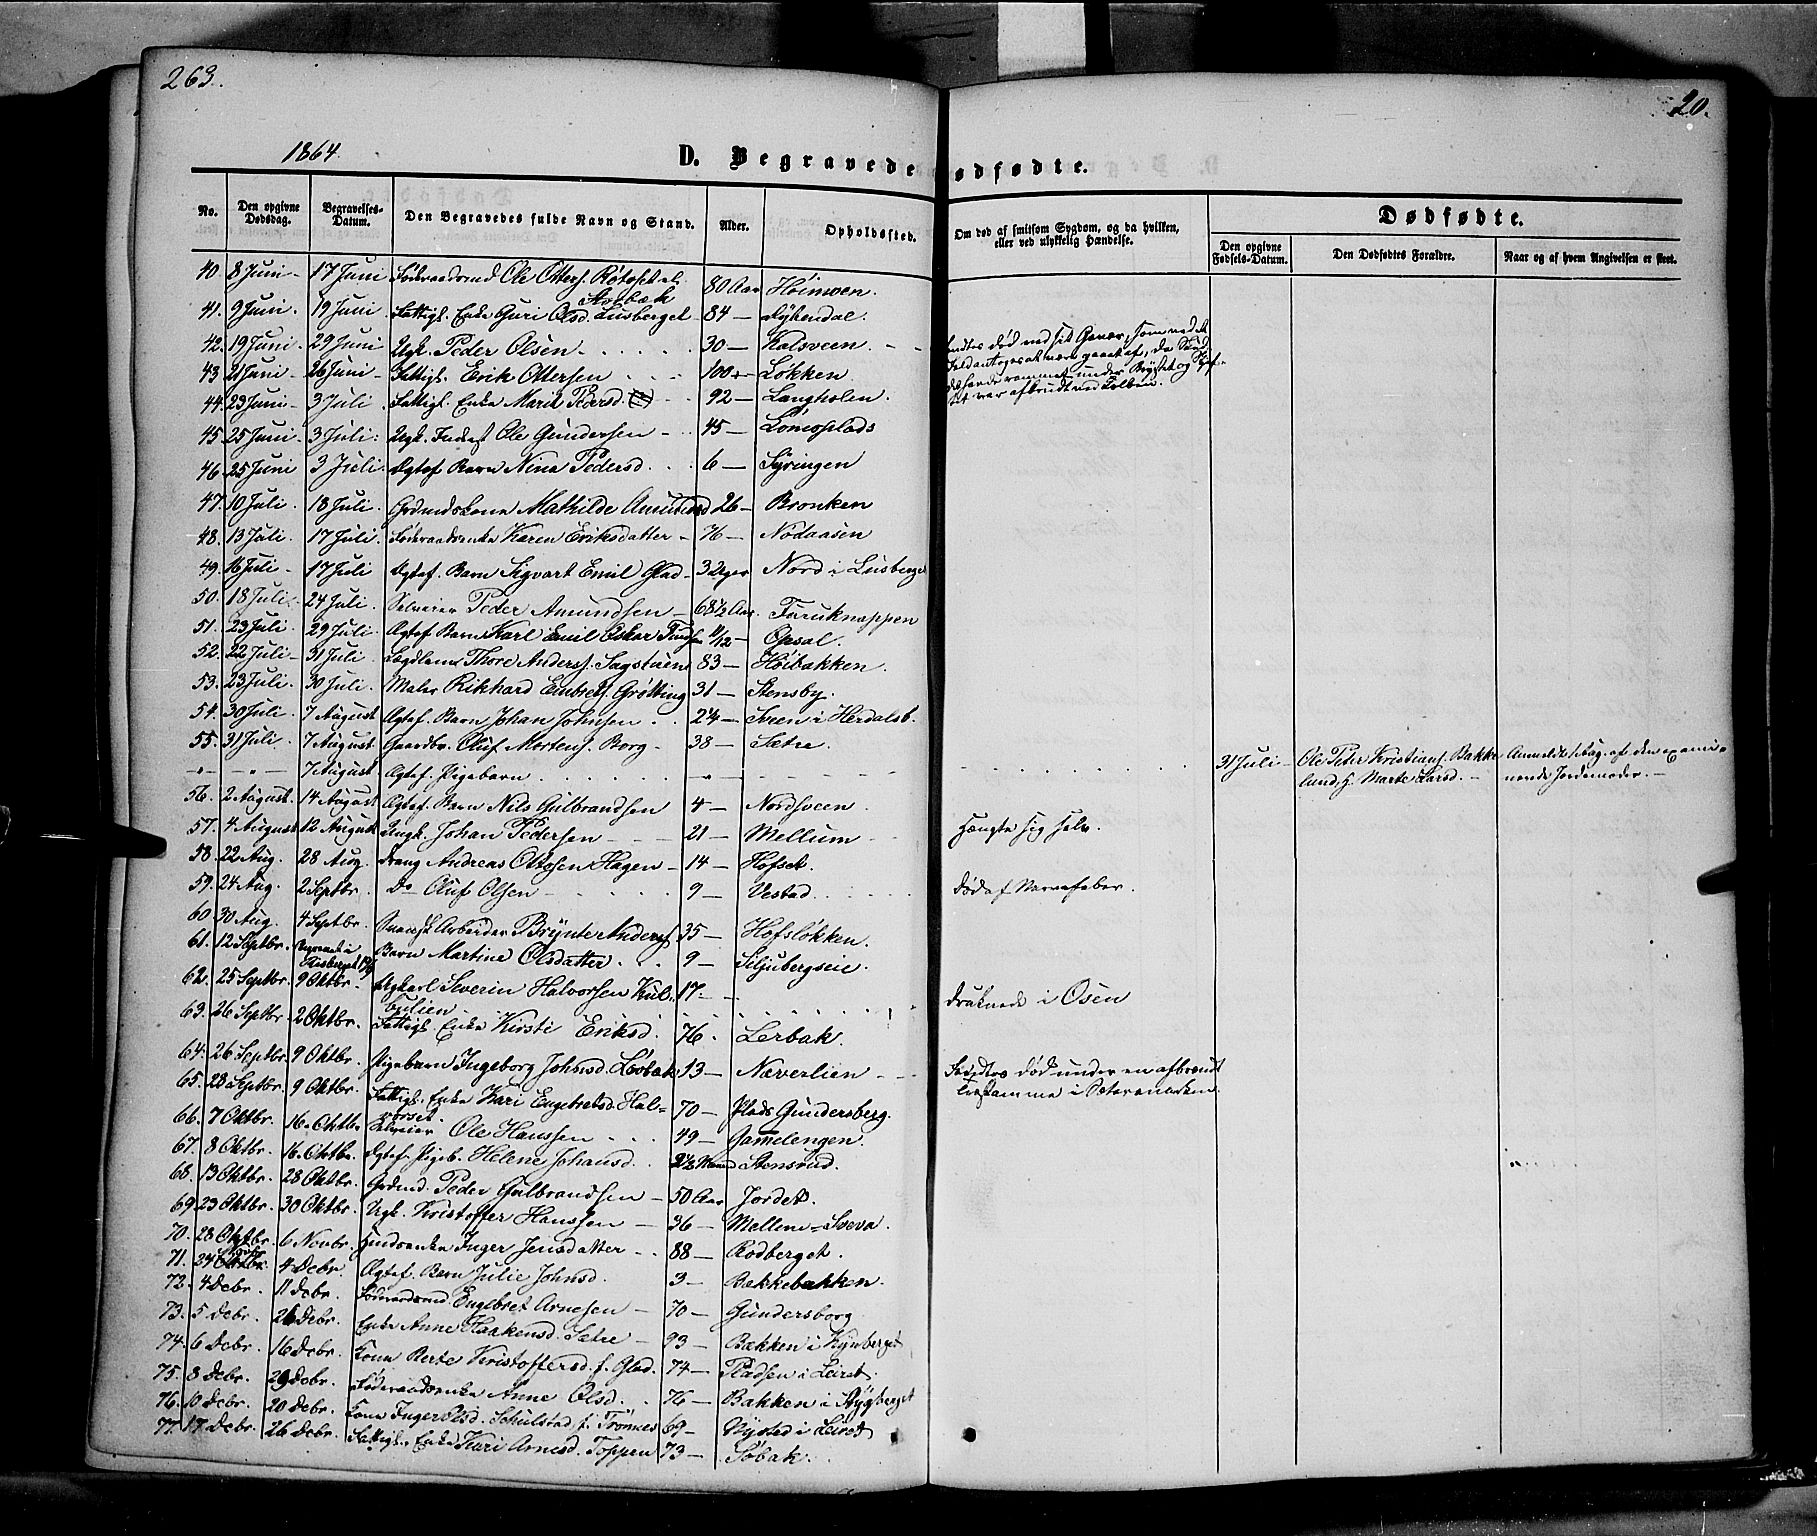 263.
20.
1864.
D. Begravede
ødfødte.
No.
Den opgivne Dødsdag.
Begravelses-Datum.
Den Begravedes fulde Navn og Stand.
Alder.
Opholdssted.
Om død af smitsom Sygdom, og da hvilken, eller ved ulykkelig Hændelse.
Dødfødte.
Den opgivne Fødsels-Datum.
Den Dødfødtes Forældre.
Naar og af hvem Angivelsen er skeet.
40. 8 Juni 17 Juni Føderaadsmd Ole Otters. 80 Aar Høimoen.
41. 9 Juni. 19 Juni Fattigl. Enke Guri Olsd. Lusberget 84 — Rykendal.
42. 19 Juni. 29 Juni Ugk. Peder Olsen 30 — Kalsveen. død ved sit Gevær, som ved et
43 21 Juni 26 Juni Fattigl. Erik Ottersen 100 — Løkken.
44. 23 Juni 3 Juli. Fattigl. Enke Marit Pedersd. 92 — Langholen.
45. 25 Juni 3 Juli. Ugk. Inderst Ole Gundersen 45 — Lømoplads
46. 25 Juni 3 Juli. Ægtef. Barn Nina Pedersd. 6 — Syringen
47. 10 Juli. 18 Juli. Grdmandskone Mathilde Amundsd 26 — Bronken
48. 13 Juli. 17 Juli. Føderaadsenke Karen Eriksdatter 76 — Nodaasen
49. 16 Juli 17 Juli Ægtef. Barn Sigvart Emil Glad 3 Uger Nord i Lusberget
50. 18 Juli 24 Juli. Selveier Peder Amundsen 68½ Aar. Furuknappen
51. 23 Juli. 29 Juli. Ægtef Barn Karl Emil Oskar 11/12 — Opsal.
52. 22 Juli 31 Juli. Lægdlem Thore Anders. Sagstuen 83 — Høibakken.
53. 23 Juli. 30 Juli. Maler Rikhard Embrets. Grøtting 31 — Stensby.
54. 30 Juli. 7 August Ægtef. Barn Johan Johnsen 2¼ — Sveen i Herdalsb.
55. 31 Juli. 7 August. Gaardbr. Oluf Mortens. Borg 38 — Sætre.
— „ — 7 August Ægtef. Pigebarn — „ — 31 Juli Ole Peter Kristians. Bakke lund, H. Marte Larsd. Anmeldt s. Dag. af den exami nerede Jordemoder.
56. 2 August. 14 August Ægtef. Barn Nils Gulbrandsen 4 — Nordsveen.
57. 4 August 12 August Ungk. Johan Pedersen 21 — Mellum Hængte sig selv.
58. 22 Aug. 28 Aug. Dreng Andreas Ottosen Hagen 14 — Hofset.
59. 24 Aug. 2 Septbr. Do Oluf Olsen 9 — Vestad. Død af Nervefeber.
60. 30 Aug. 4 Septbr. Svensk Arbeider Brynte Anders 35 — Hofsløkken.
61. 12 Septbr. Begravet i Barn Martine Olsdatter. 9 — Siljubergseie.
62. 25 Septbr. 9 Oktbr. Ugkarl Severin Halvorsen Kul bulien 17 — Druknede i Osen
63. 26 Septbr 2 Oktbr. Fattigl. Enke Kirsti Eriksd. 76. Lerbak.
64. 26 Septbr. 9 Oktbr. Pigebarn Ingeborg Johnsd. Løvbæk 13 — Næverlien Fandtes død under en afbrændt i Sætermarken.
65. 28 Septbr. 9 Oktbr. Fattigl. Enke Kari Engebretsd. Hal= vorset 70 — Plads Gundersberg.
66. 7 Oktbr. 16. Oktbr. Selveier Ole Hanssen 49 — Gammelengen.
67. 8 Oktbr. 16. Oktbr. Ægtef. Pigeb. Helene Johansd. 2½ Maand Stensrud.
68. 13 Oktbr. 28 Oktbr. Grdmd. Peder Gulbrandsen 50 Aar Jordet.
69. 23 Oktbr. 30 Oktbr. Ugk. Kristoffer Hanssen 36 — Mellem-Sveva.
70. 28 Oktbr. 6 Novbr. Huusenke Inger Jensdatter 88 — Rodberget.
71. 24 Novbr 4 Debr. Ægtef. Barn Julie Johnsd. 3 — Bækkebakken.
72. 4 Debr. 11 Debr. Føderaadsmd Engebret Arnesen 70 — Gundersborg
73. 5 Debr. 26 Debr. Enke Anne Haakensd. Sætre 93 — Bækken i Kynberget
74. 6 Debr. 16 Debr. Kone Berte Kristoffersd. f. Glad. 74 — Pladsen i Leiret.
75. 8 Debr. 29 Debr. Føderaadsenke Anne Olsd. 76 — Bakken i
76. 10 Debr. 20 Debr. Kone Inger Olsd. Schulstad f. Trønnes 69 — Nysted i Leiret
77. 17 Debr. 26 Debr. Fattigl. Enke Kari Arnesd. Toppen 73 — Søbak.